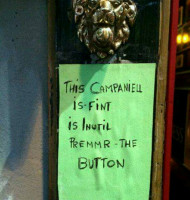 THIS CAMPANIELL
IS FINT
IS INUTIL
PREMMR - THE
BUTTON